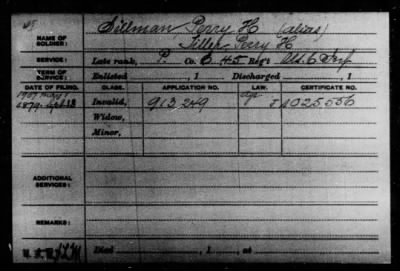 NAME OF SOLDIER: Dillman, Perry H (alias)
Tiller, Perry H
SERVICE: Late rank, P. Co. B 45 Reg't
TERM OF SERVICE: Enlisted , 1 Discharged , 1
DATE OF FILING. CLASS. APPLICATION NO. LAW. CERTIFICATE NO.
1907 May
Invalid, 913249 1025556
Widow,
Minor,
ADDITIONAL SERVICES:
REMARKS:
Died , 1 , at